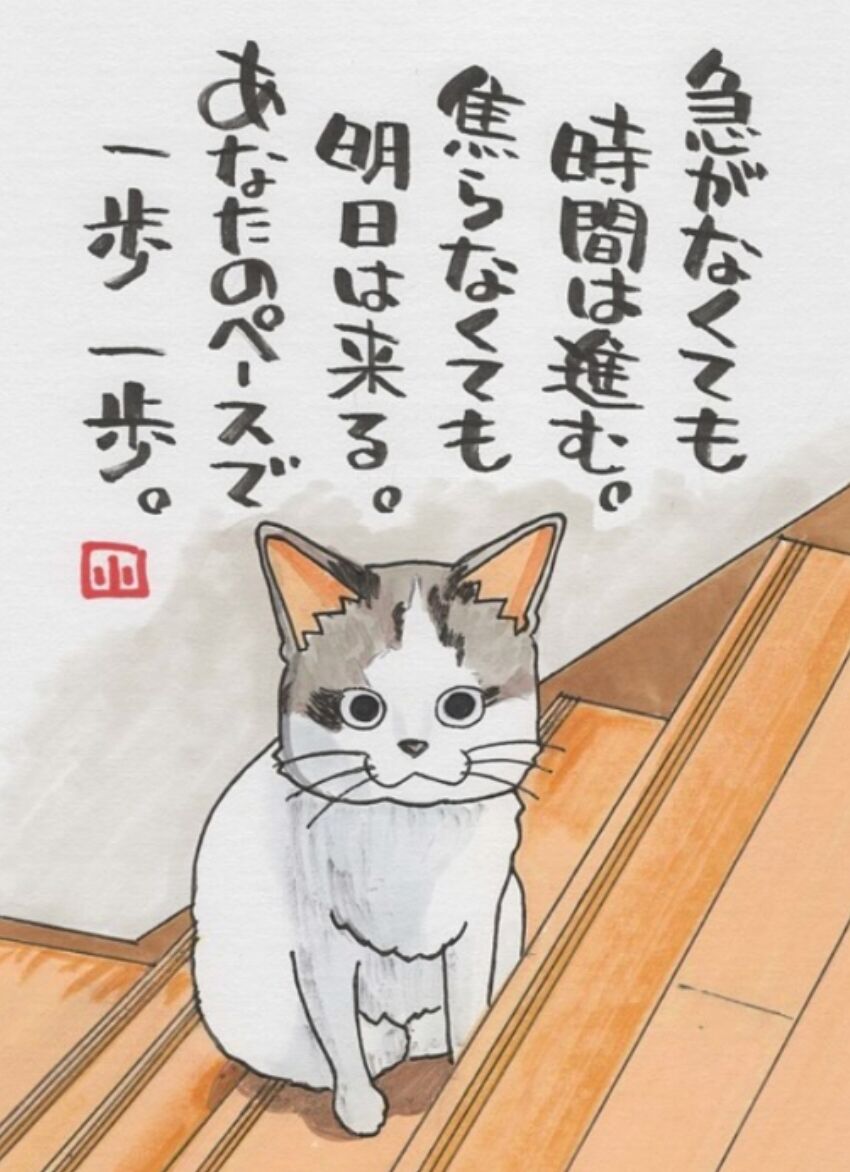 急がなくても
時間は進む。
焦らなくても
明日は来る。
あなたのペースで
一歩一歩。